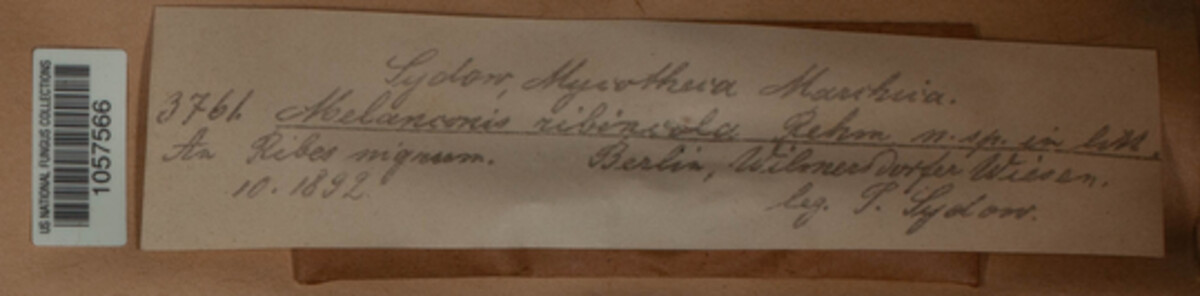 US NATIONAL FUNGUS COLLECTIONS
10575566
Sydow, Mycotheca Marchica.
3761. Melanconis ribincola Rehm n. sp. in litt.
An Ribes nigrum. Berlin, Wilmersdorfer Wiesen.
10. 1892.
leg. P. Sydow.